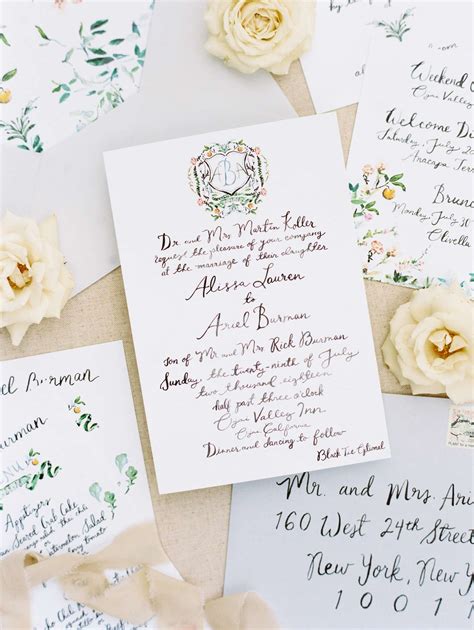 Weekend
Ojai Valley
Welcome Di
Saturday, July 2
Anacapa Terr
Brunc
Monday, July
Olivella
ABA
Dr. and Mrs. Martin Koller
request the pleasure of your company
at the marriage of their daughter
Alissa Lauren
to
Ariel Burman
Son of Mr. and Mrs. Rick Burman
Sunday, the twenty-ninth of July
two thousand eighteen
half past three o'clock
Ojai Valley Inn
Ojai California
Dinner and dancing to follow
Black Tie Optional
el Burman
Burman
NU
Appetizers
Seared Crab Cake
Salad
Mr. and Mrs. Ari
160 West 24th Street
New York, New Yor
1001